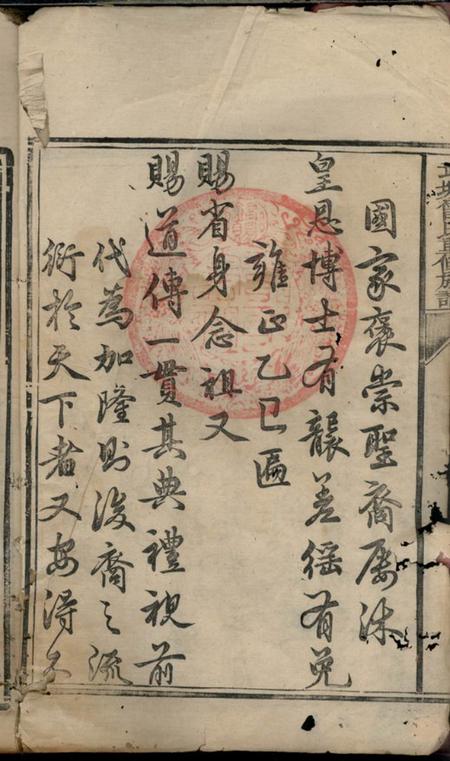 國家褒崇聖裔屢沐
皇恩博士有襲差徭有免
雍正乙巳匾
賜省身念祖又
賜道傳一貫其典禮視前
代為加隆則後裔之流
衍於天下者又安得不